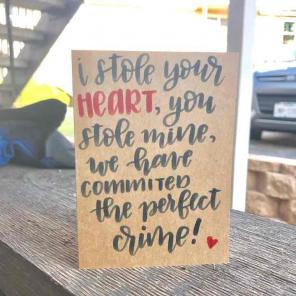 i stole your
HEART, you
stole mine,
we have
COMMITED
the perfect
crime!